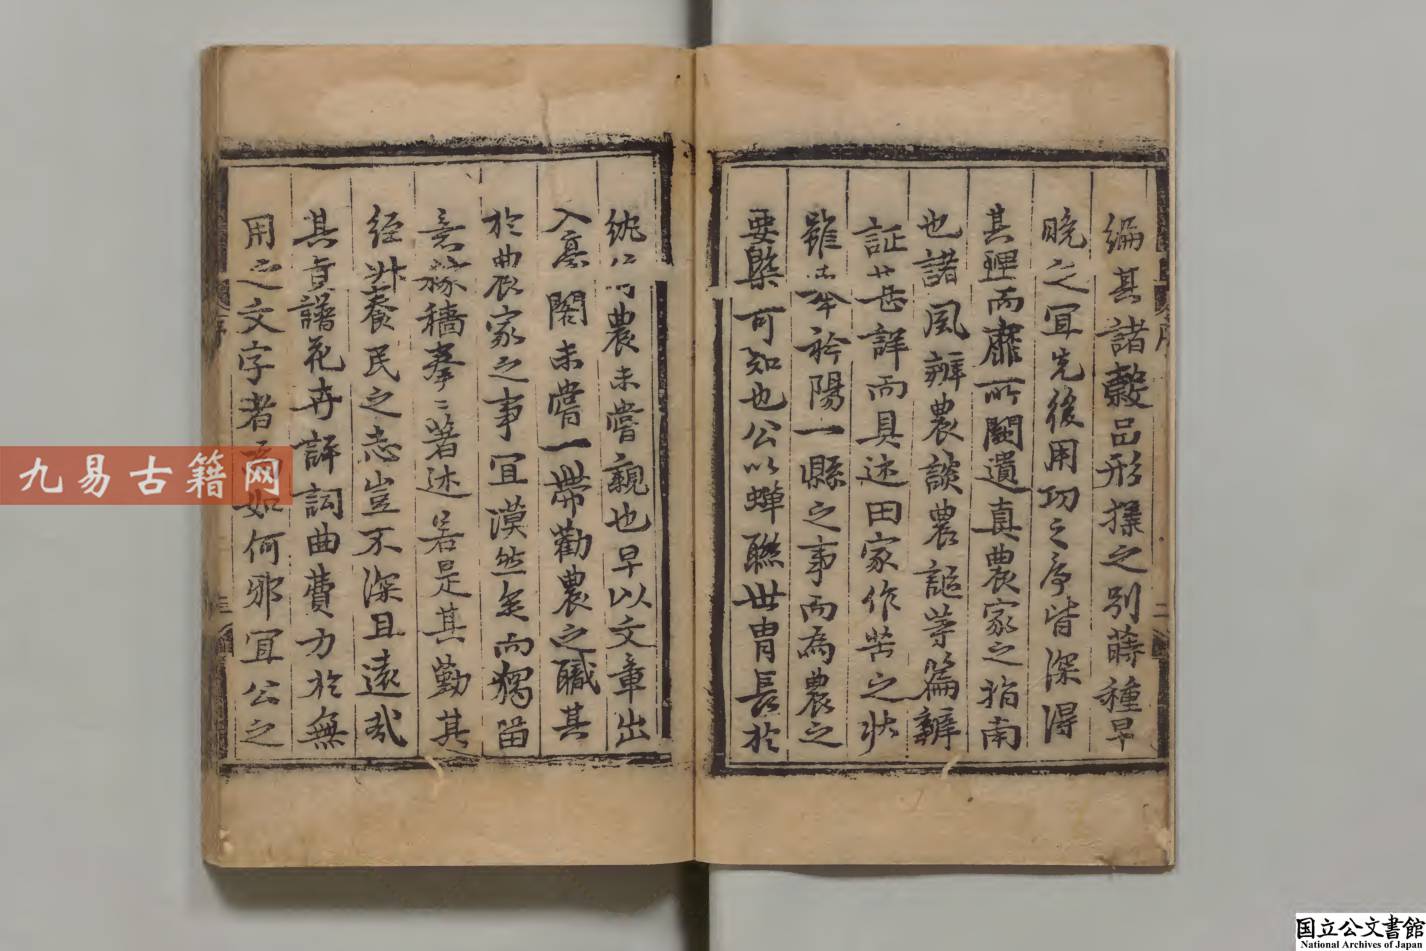 編其諸穀品形操之別蒔種早
晚之宜先後用功之序皆深得
其理而靡所闕遺真農家之指南
也諸風辨農談農謳等篇辨
証甚詳而具述田家作苦之狀
雖 衿陽一縣之事而為農之
要槩可知也公以蟬聯世冑長於
紈 農未嘗親也早以文章出
入臺閣未嘗一帶勸農之職其
於農家之事宜漠然矣而獨留
意稼穡拳〻著述若是其勤其
經 養民之志豈不深且遠哉
其眎譜花卉評詞曲費力於無
用之文字者 如何邪宜公之
序
二
序
三
九易古籍网
国立公文書館
National Archives of Japan